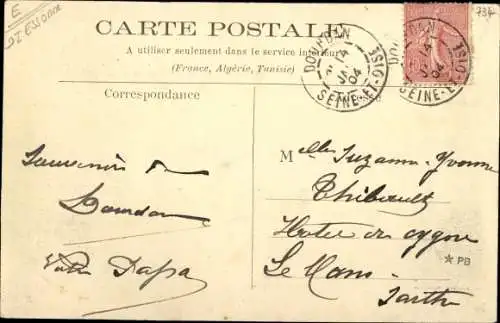 E
91 ESSONNE
73F
CARTE POSTALE
A utiliser seulement dans le service intérieur
(France, Algérie, Tunisie)
DOURDAN
14
04
SEINE-ET-OISE
DOURDAN
14
04
SEINE-ET-OISE
Correspondance
Souvenirs de
Dourdan
Votre Papa
Melles Suzanne-Yvonne
Thibault
Hotel du cygne
Le Mans
Sarthe
* PB